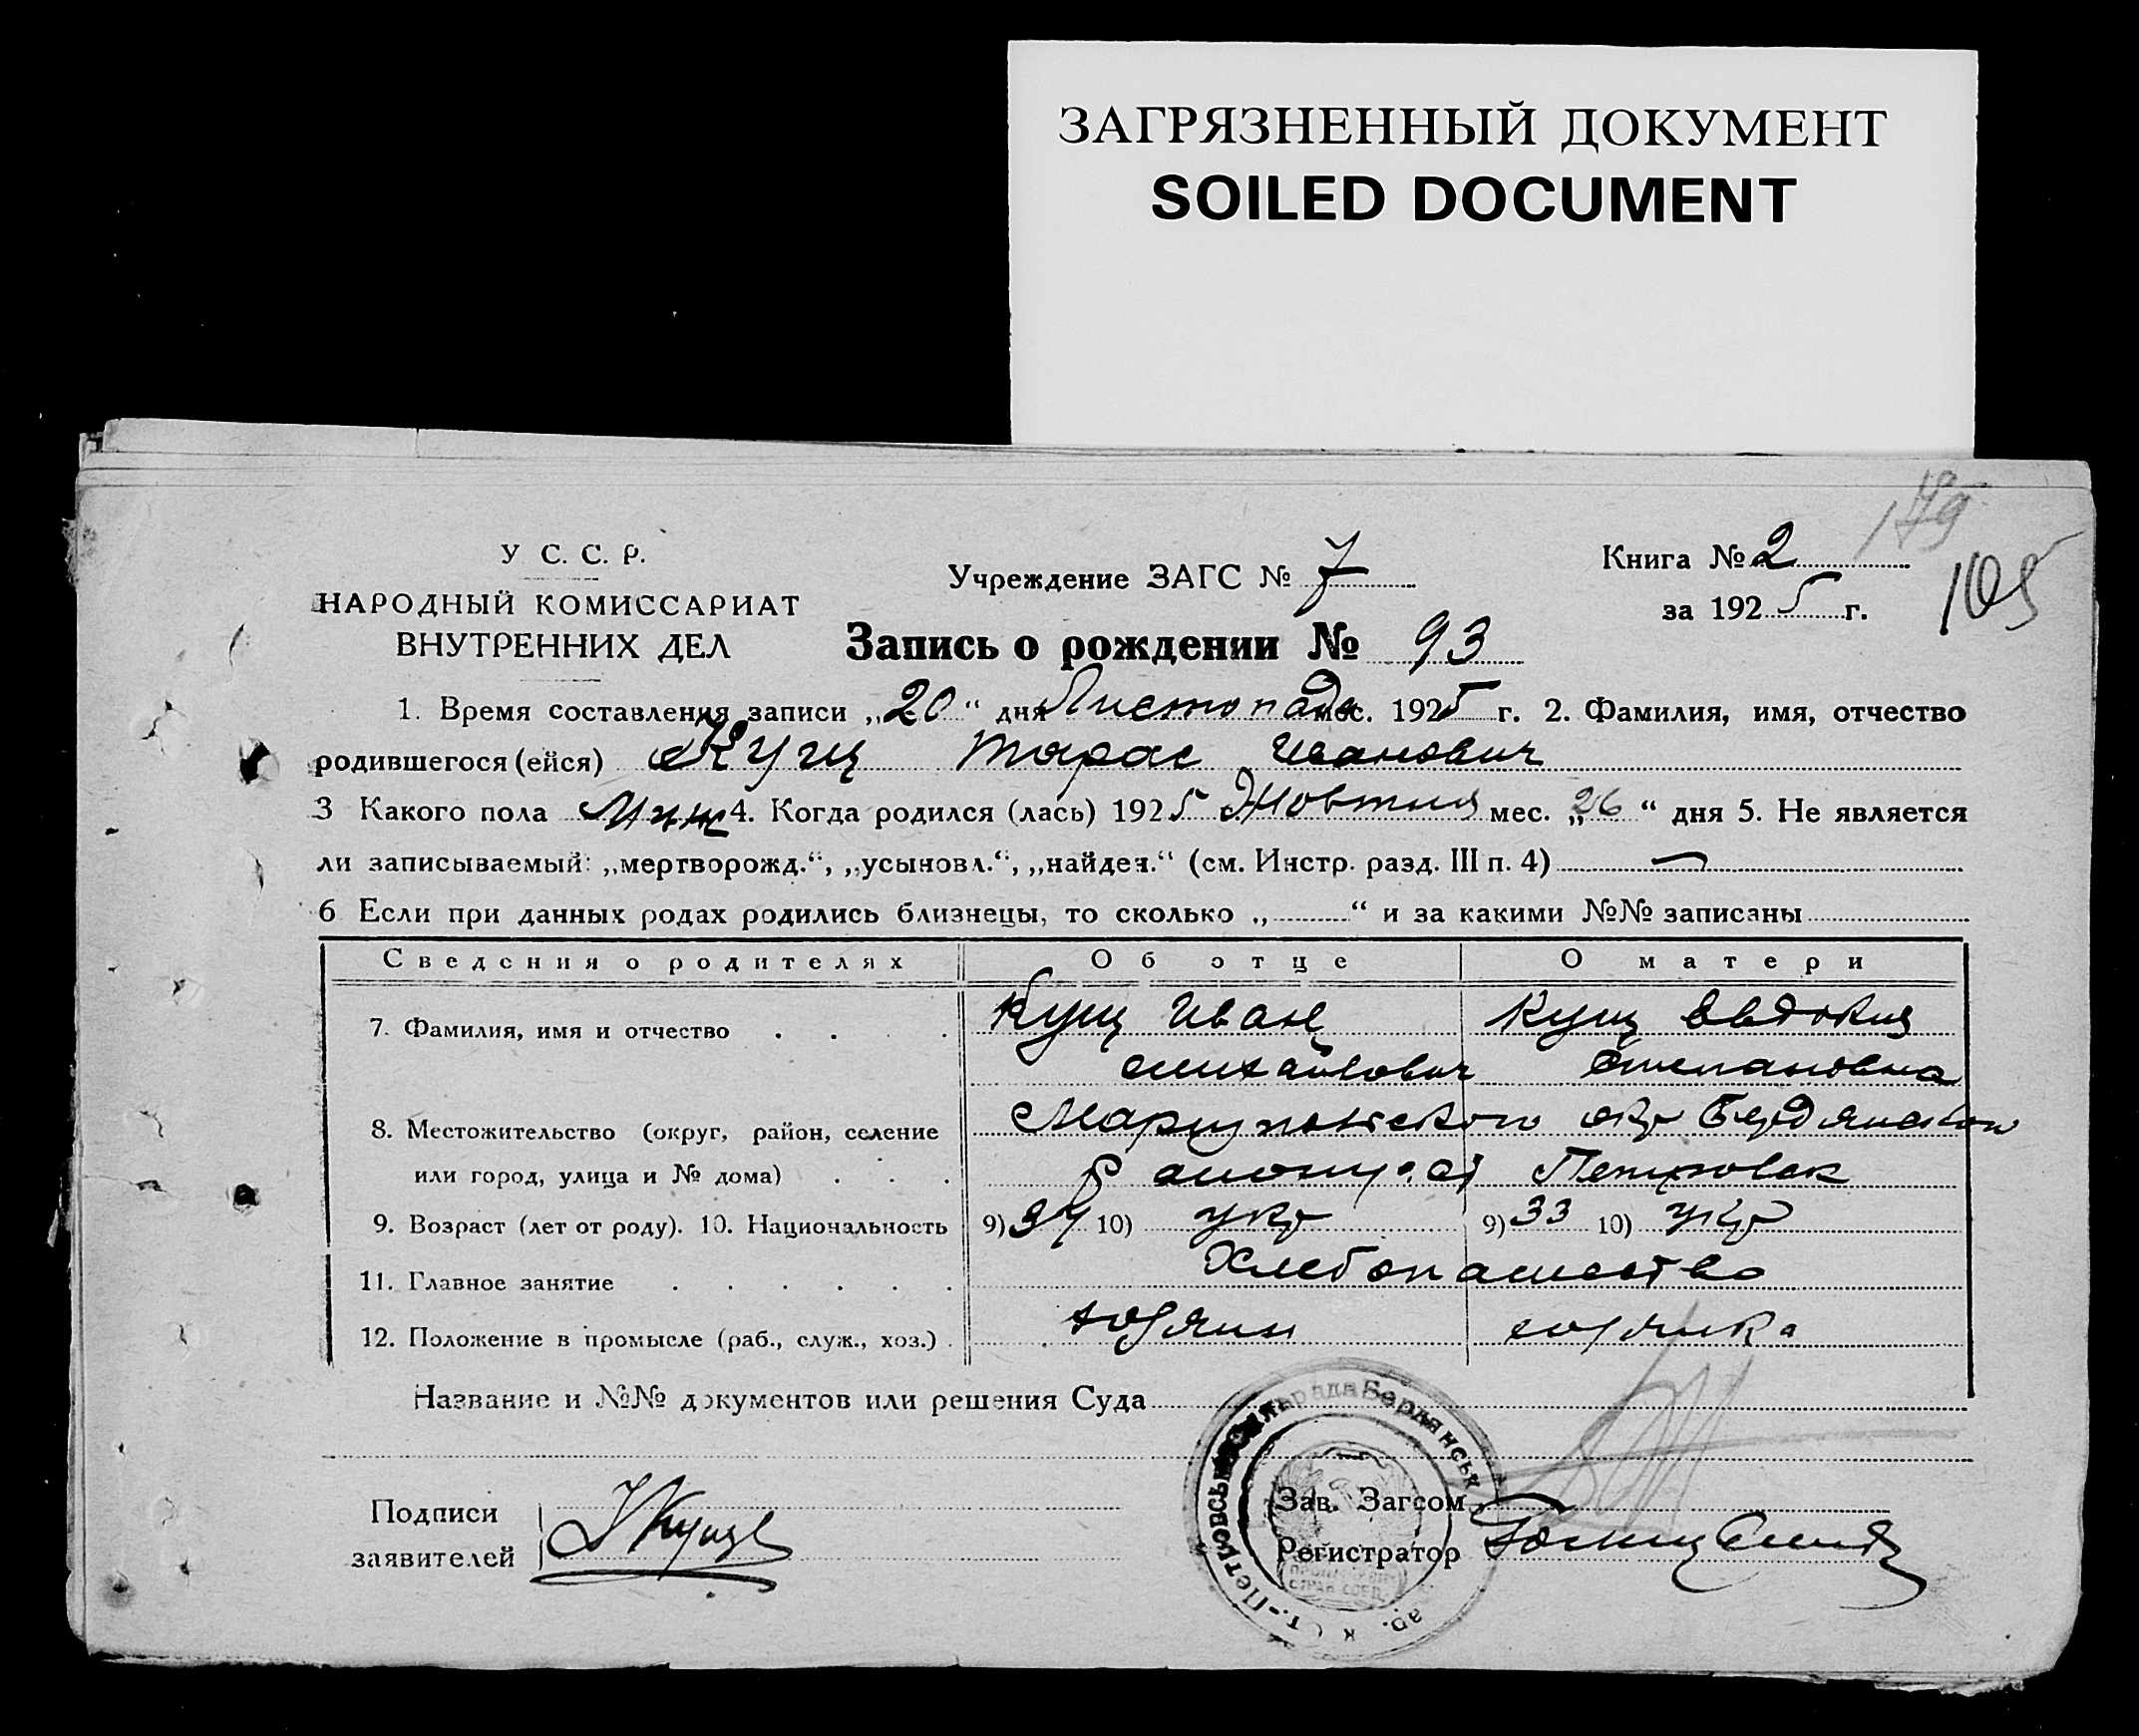 ЗАГРЯЗНЕННЫЙ ДОКУМЕНТ
SOILED DOCUMENT
179
105
У С. С. Р.
НАРОДНЫЙ КОМИССАРИАТ
ВНУТРЕННИХ ДЕЛ
Учреждение ЗАГС № 7
Книга № 2
за 1925 г.
Запись о рождении № 93
1. Время составления записи „20“ дня Листопада мес. 1925 г. 2. Фамилия, имя, отчество
родившегося (ейся) Кущ Тарас Иванович
3 Какого пола 4. Когда родился (лась) 1925 Жовтня мес. „26“ дня 5. Не является
ли записываемый: „мертворожд.“, „усыновл.“, „найден.“ (см. Инстр. разд. III п. 4)
6 Если при данных родах родились близнецы, то сколько „ “ и за какими №№ записаны
Сведения о родителях Об отце О матери
7. Фамилия, имя и отчество Кущ Иван Кущ Евдокия
Михайлович Степановна
8. Местожительство (округ, район, селение Мариупольского окр Бердянского
или город, улица и № дома) Петровск
9. Возраст (лет от роду). 10. Национальность 9) 34 10) укр 9) 33 10) укр
11. Главное занятие Хлебопашество
12. Положение в промысле (раб., служ., хоз.)
Название и №№ документов или решения Суда
Подписи
заявителей
Зав. Загсом
Регистратор